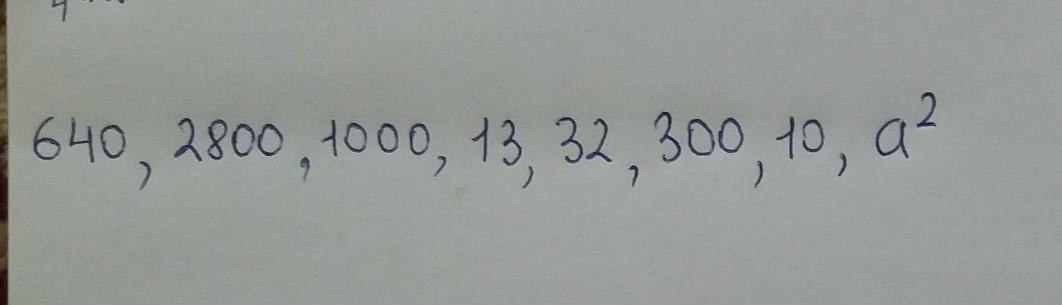 640, 2800, 1000, 13, 32, 300, 10, a²